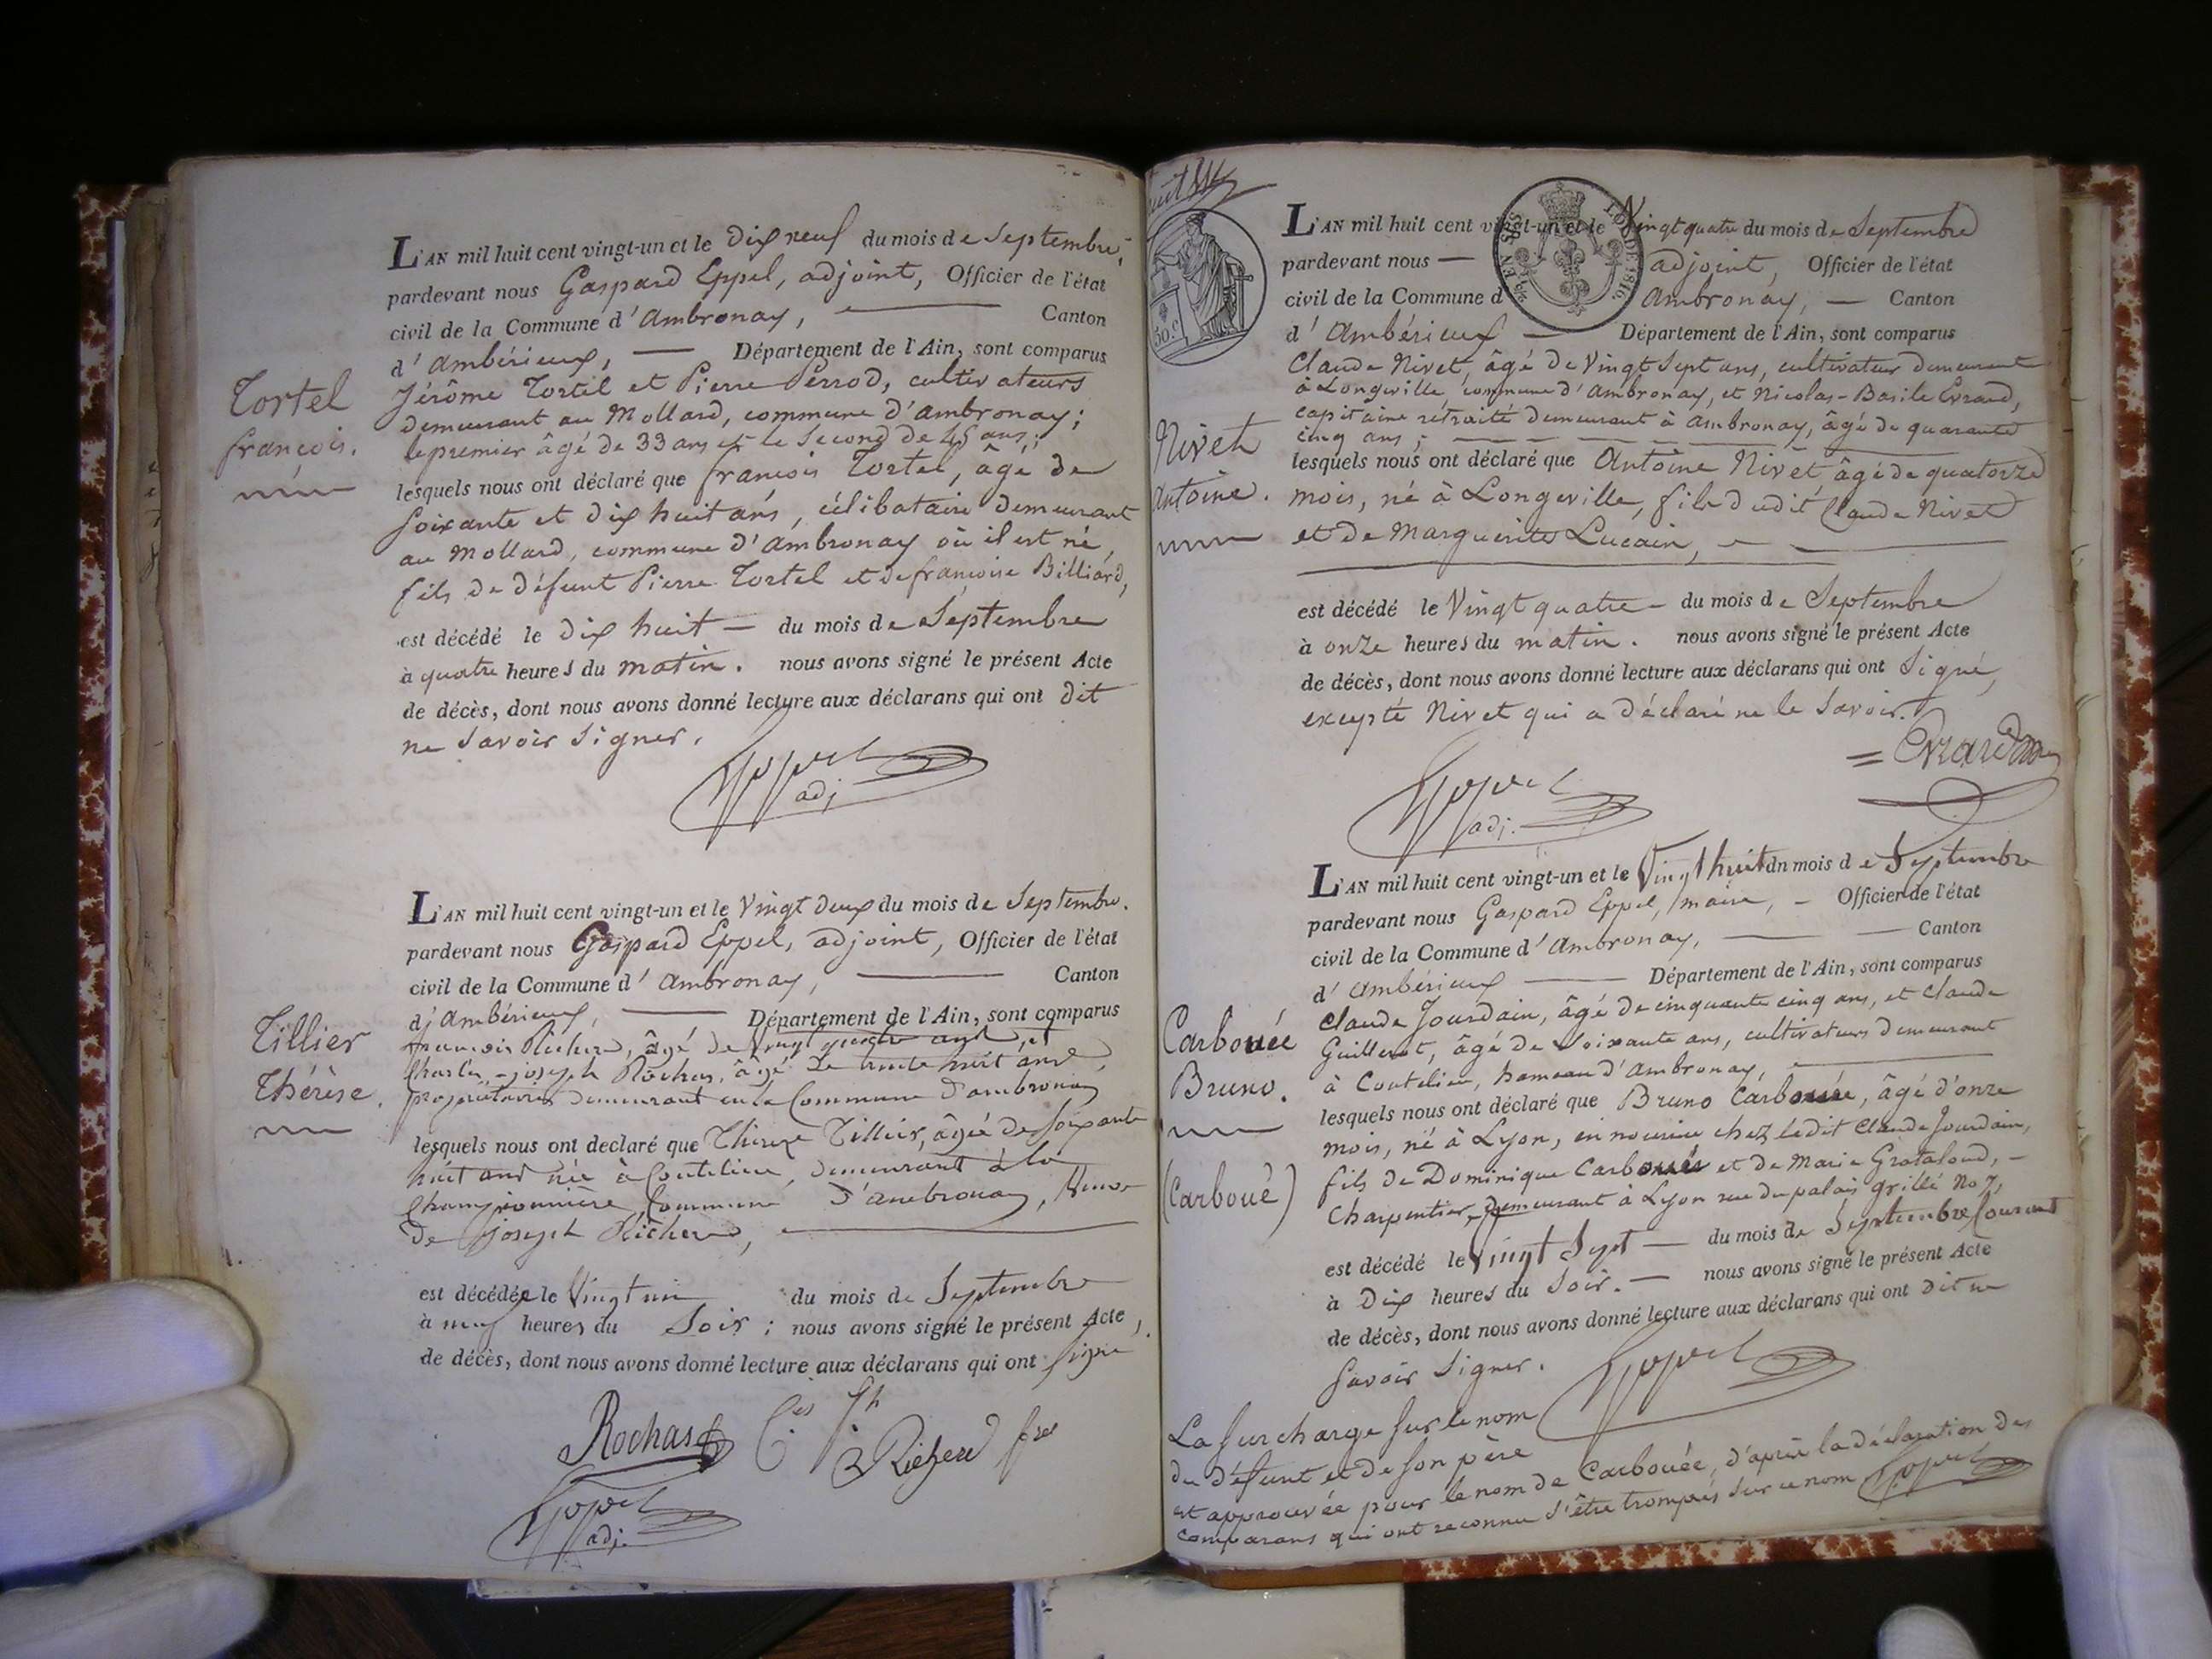 L'AN mil huit cent vingt-un et le dix neuf du mois de Septembre,
pardevant nous Gaspard Eppel, adjoint, Officier de l'état
civil de la Commune d'Ambronay, Canton
d'Ambérieux, Département de l'Ain, sont comparus
Jérôme Tortel et Pierre Perrod, cultivateurs
demeurant au Mollard, commune d'ambronay;
le premier âgé de 33 ans et le Second de 45 ans;
lesquels nous ont déclaré que françois Tortel, âgé de
soixante et dix huit ans, célibataire demeurant
au Mollard, commune d'ambronay où il est né,
fils de défunt Pierre Tortel et de françoise Billiard,
est décédé le dix huit du mois de Septembre
à quatre heures du matin. nous avons signé le présent Acte
de décès, dont nous avons donné lecture aux déclarans qui ont dit
ne Savoir Signer.
Eppel
adj
Tortel
françois.
L'AN mil huit cent vingt-un et le Vingt deux du mois de Septembre.
pardevant nous Gaspard Eppel, adjoint, Officier de l'état
civil de la Commune d'Ambronay, Canton
d'Ambérieux, Département de l'Ain, sont comparus
françois Richerd, âgé de vingt quatre ans, et
Charles-joseph Rochas, âgé de trente huit ans,
propriétaires demeurant en la Commune d'ambronay
lesquels nous ont declaré que Thérèse Tillier, âgée de soixante
huit ans née à Coutelieu, demeurant à la
Championnière, Commune d'ambronay, Veuve
de joseph Richerd,
est décédée le Vingt un du mois de Septembre
à neuf heures du Soir; nous avons signé le présent Acte,
de décès, dont nous avons donné lecture aux déclarans qui ont signé
Rochas Ces Jh
Richerd fres
Eppel
adj.
Tillier
Thérèse.
L'AN mil huit cent vingt-un et le Vingt quatre du mois de Septembre
pardevant nous adjoint, Officier de l'état
civil de la Commune d Ambronay, Canton
d'Ambérieux Département de l'Ain, sont comparus
Claude Nivet, âgé de Vingt Sept ans, cultivateur demeurant
à Longeville, commune d'Ambronay, et Nicolas-Basile Evrard,
capitaine retraité demeurant à ambronay, âgé de quarante
cinq ans;
lesquels nous ont déclaré que Antoine Nivet âgé de quatorze
mois, né à Longeville, fils dudit Claude Nivet
et de Marguerite Lucain,
est décédé le Vingt quatre du mois de Septembre
à onze heures du matin. nous avons signé le présent Acte
de décès, dont nous avons donné lecture aux déclarans qui ont Signé,
excepté Nivet qui a déclaré ne le Savoir.
Evrard
Eppel
adj.
Nivet
antoine.
50.c
LOI DE 1816.
L'AN mil huit cent vingt-un et le Vingt huit du mois de Septembre
pardevant nous Gaspard Eppel, maire, Officier de l'état
civil de la Commune d'Ambronay, Canton
d'Ambérieux Département de l'Ain, sont comparus
Claude Jourdain, âgé de cinquante cinq ans, et Claude
Guillerot, âgé de Soixante ans, cultivateurs demeurant
à Coutelieu, hameau d'Ambronay,
lesquels nous ont déclaré que Bruno Carbouée, âgé d'onze
mois, né à Lyon, en nourrice chez ledit Claude Jourdain,
fils de Dominique Carbouée et de Marie Grataloud,
Charpentier, demeurant à Lyon rue du palais grillé No 7,
est décédé le Vingt Sept du mois de Septembre Courant
à Dix heures du Soir. nous avons signé le présent Acte
de décès, dont nous avons donné lecture aux déclarans qui ont dit ne
Savoir Signer.
Eppel
Carbouée
Bruno.
(Carboué)
La Surcharge Sur le nom
du défunt et de son père
est approuvée pour le nom de Carbouée, d'après la déclaration des
comparans qui ont reconnu S'être trompés Sur ce nom Eppel